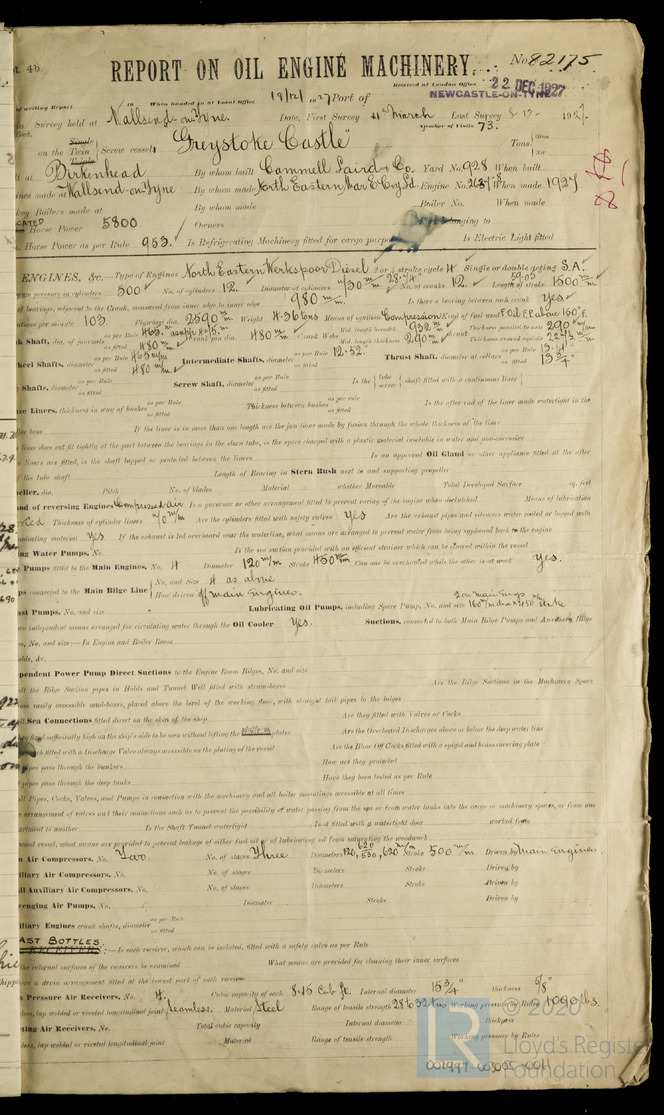 4b
REPORT ON OIL ENGINE MACHINERY.
No 82175
Received at London Office 22 DEC 1927
of writing Report When handed in at Local Office 19/12/1927 Port of NEWCASTLE-ON-TYNE
in Survey held at Wallsend-on-Tyne. Date, First Survey 4th March Last Survey 192
Number of Visits 73.
on the Single Twin Triple Screw vessel "Greystoke Castle" Tons
at Birkenhead By whom built Cammell Laird & Co. Yard No. 928 When built
Engines made at Wallsend on Tyne By whom made North Eastern Mar E Coy Ld. Engine No. When made 1927
Boilers made at By whom made Boiler No. When made
Horse Power 5800 Owners belonging to
Horse Power as per Rule 953. Is Refrigerating Machinery fitted for cargo purposes Is Electric Light fitted
ENGINES, &c.—Type of Engines North Eastern Werkspoor Diesel 2 or 4 stroke cycle 4 Single or double acting S.A.
pressure in cylinders 500 No. of cylinders 12. Diameter of cylinders No. of cranks 12. Length of stroke 1500 m/m
of bearings, adjacent to the Crank, measured from inner edge to inner edge 980 m/m. Is there a bearing between each crank Yes
per minute 103. Flywheel dia. 2590 m/m Weight Means of ignition Compression Kind of fuel used
Shaft, dia. of journals as per Rule as fitted 480 m/m Crank pin dia. 480 m/m Crank Webs Mid. length breadth 932 m/m Mid. length thickness 290 m/m Thickness parallel to axis 290 m/m Thickness around eyehole
Wheel Shafts, diameter as per Rule 463 m/m as fitted 480 m/m Intermediate Shafts, diameter as per Rule 12.52" as fitted Thrust Shaft, diameter at collars as per Rule 13.14" as fitted 13 3/4"
Shafts, diameter as per Rule as fitted Screw Shaft, diameter as per Rule as fitted Is the tube screw shaft fitted with a continuous liner
Liners, thickness in way of bushes as per Rule as fitted Thickness between bushes as per rule as fitted Is the after end of the liner made watertight in the
If the liner is in more than one length are the junctions made by fusion through the whole thickness of the liner
liner does not fit tightly at the part between the bearings in the stern tube, is the space charged with a plastic material insoluble in water and non-corrosive
liners are fitted, is the shaft lapped or protected between the liners Is an approved Oil Gland or other appliance fitted at the after
of the tube shaft Length of Bearing in Stern Bush next to and supporting propeller
Propeller, dia. Pitch No. of blades Material whether Moveable Total Developed Surface sq. feet
of reversing Engines Compressed Air Is a governor or other arrangement fitted to prevent racing of the engine when declutched Means of lubrication
Thickness of cylinder liners Are the cylinders fitted with safety valves Yes Are the exhaust pipes and silencers water cooled or lagged with
material Yes If the exhaust is led overboard near the waterline, what means are arranged to prevent water from being syphoned back to the engine
Water Pumps, No. Is the sea suction provided with an efficient strainer which can be cleared within the vessel
Pumps fitted to the Main Engines, No. 4 Diameter 120 m/m Stroke 450 m/m Can one be overhauled while the other is at work Yes.
connected to the Main Bilge Line No. and Size 4 as above How driven off Main Engines.
Pumps, No. and size Lubricating Oil Pumps, including Spare Pump, No. and size 2 on Main Engs 160 m/m dia x 450 stroke
independent means arranged for circulating water through the Oil Cooler Yes. Suctions, connected to both Main Bilge Pumps and Auxiliary Bilge
No. and size:—In Engine and Boiler Room
Holds, &c.
Independent Power Pump Direct Suctions to the Engine Room Bilges, No. and size
all the Bilge Suction pipes in Holds and Tunnel Well fitted with strum-boxes Are the Bilge Suctions in the Machinery Space
from easily accessible mud-boxes, placed above the level of the working floor, with straight tail pipes to the bilges
Sea Connections fitted direct on the skin of the ship Are they fitted with Valves or Cocks
fixed sufficiently high on the ship's side to be seen without lifting the plates Are the Overboard Discharges above or below the deep water line
each fitted with a Discharge Valve always accessible on the plating of the vessel Are the Blow Off Cocks fitted with a spigot and brass covering plate
pipes pass through the bunkers How are they protected
pipes pass through the deep tanks Have they been tested as per Rule
all Pipes, Cocks, Valves, and Pumps in connection with the machinery and all boiler mountings accessible at all times
arrangement of valves and their connections such as to prevent the possibility of water passing from the sea or from water tanks into the cargo or machinery spaces, or from one
to another Is the Shaft Tunnel watertight Is it fitted with a watertight door worked from
vessel, what means are provided to prevent leakage of either fuel oil or lubricating oil from saturating the woodwork
Air Compressors, No. Two. No. of stages Three Diameters Stroke 500 m/m Driven by Main Engines
Auxiliary Air Compressors, No. No. of stages Diameters Stroke Driven by
Small Auxiliary Air Compressors, No. No. of stages Diameters Stroke Driven by
Scavenging Air Pumps, No. Diameter Stroke Driven by
Auxiliary Engines crank shafts, diameter as per Rule as fitted
BLAST BOTTLES. RECEIVERS:—Is each receiver, which can be isolated, fitted with a safety valve as per Rule
the internal surfaces of the receivers be examined What means are provided for cleaning their inner surfaces
a drain arrangement fitted at the lowest part of each receiver
Pressure Air Receivers, No. 4. Cubic capacity of each 8.15 Cub ft. Internal diameter 15 3/4" thickness 5/8"
lap welded or riveted longitudinal joint Seamless. Material Steel Range of tensile strength 28 to 32 tons Working pressure by Rules 1090 lbs.
Starting Air Receivers, No. Total cubic capacity Internal diameter thickness
lap welded or riveted longitudinal joint Material Range of tensile strength Working pressure by Rules
© 2020
Lloyd's Register
Foundation
001997-003005-0011